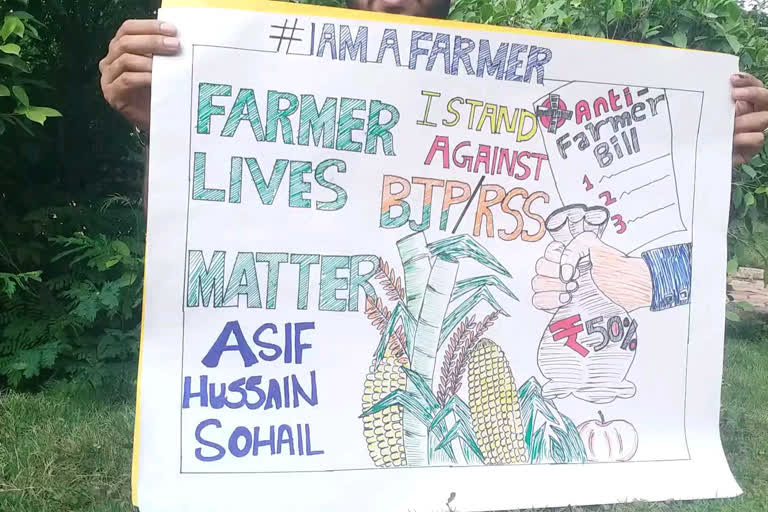 #IAM A FARMER
FARMER
LIVES
MATTER
ASIF
HUSSAIN
SOHAIL
I STAND
AGAINST
BJP/RSS
Anti-
Farmer
Bill
1
2
3
₹50%